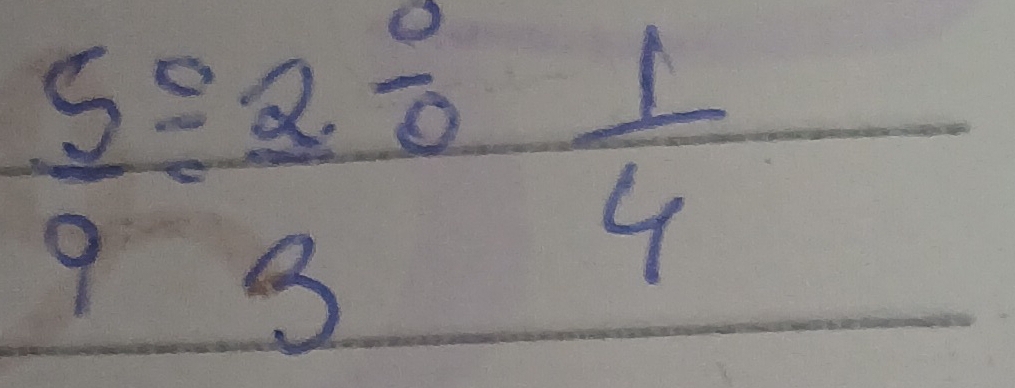 5/9 ÷ 2/3 ÷ 1/4